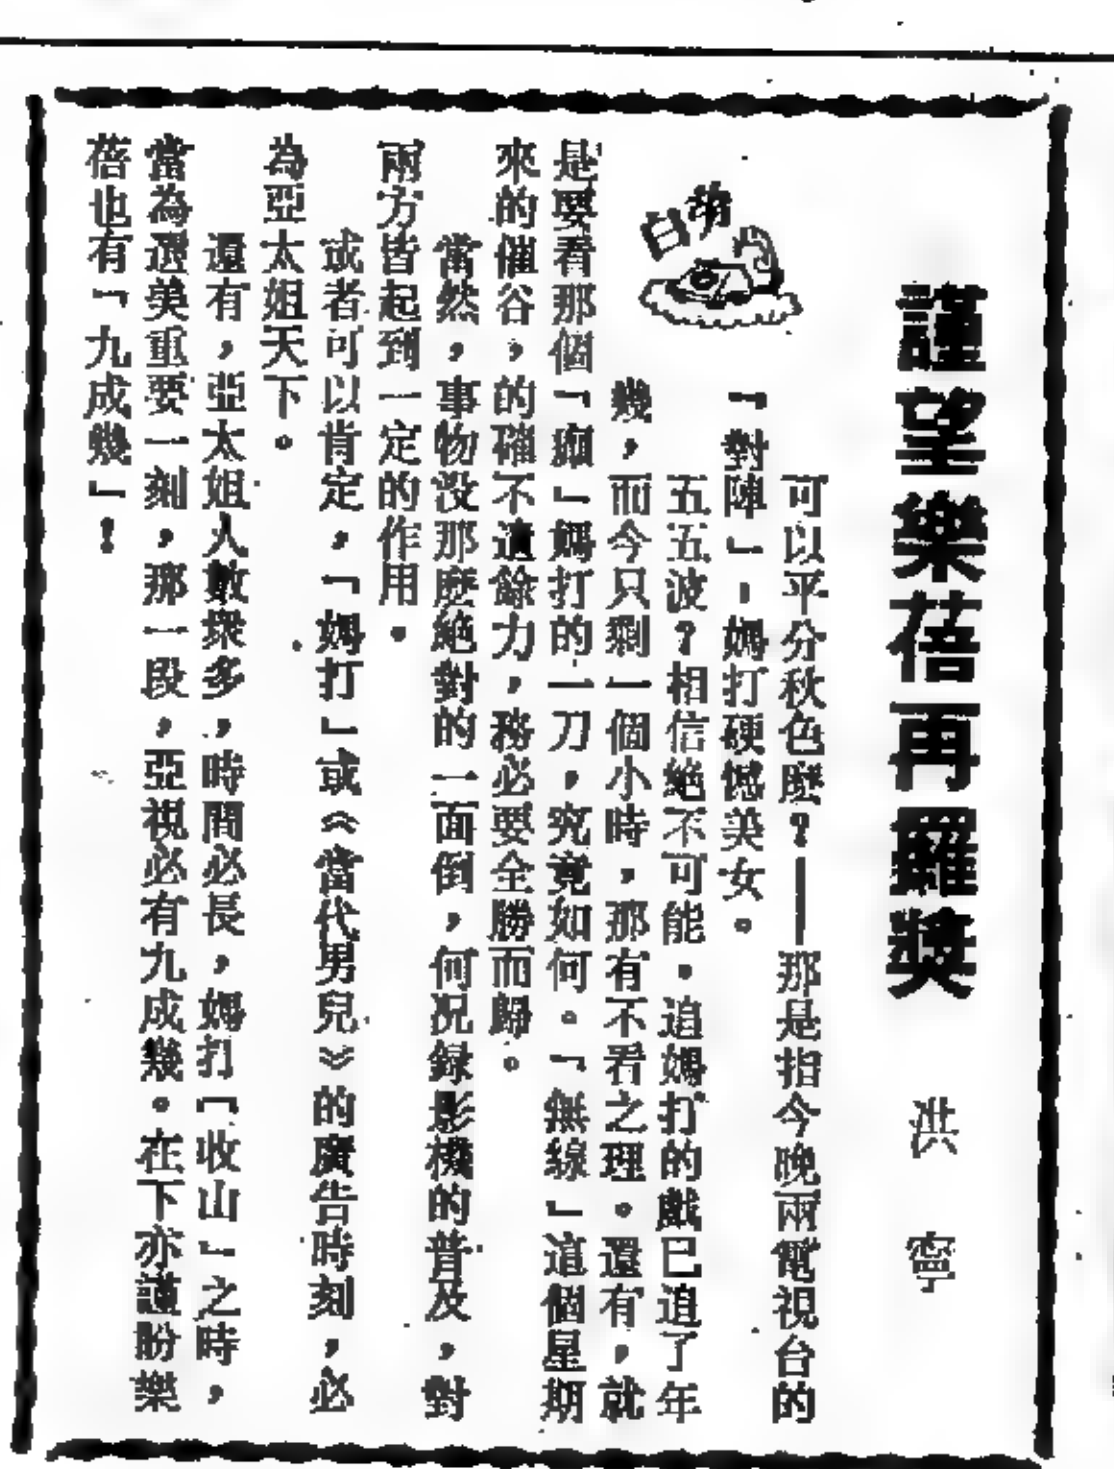 謹望樂蓓再羅獎
洪寧
白灼
可以平分秋色麽?——那是指今晚兩電視台的
「對陣」-媽打硬憾美女。
五五波?相信絕不可能。追媽打的戲已追了年
幾,而今只剩一個小時,那有不看之理。還有,就
是要看那個「癲」媽打的一刀,究竟如何。「無線」這個星期
來的催谷,的確不遺餘力,務必要全勝而歸。
當然,事物没那麽絕對的一面倒,何况録影機的普及,對
兩方皆起到一定的作用。
或者可以肯定,「媽打」或《當代男兒》的廣告時刻,必
為亞太姐天下。
還有,亞太姐人數衆多,時間必長,媽打「收山」之時,
當為選美重要一刻,那一段,亞視必有九成幾。在下亦謹盼樂
蓓也有「九成幾」!